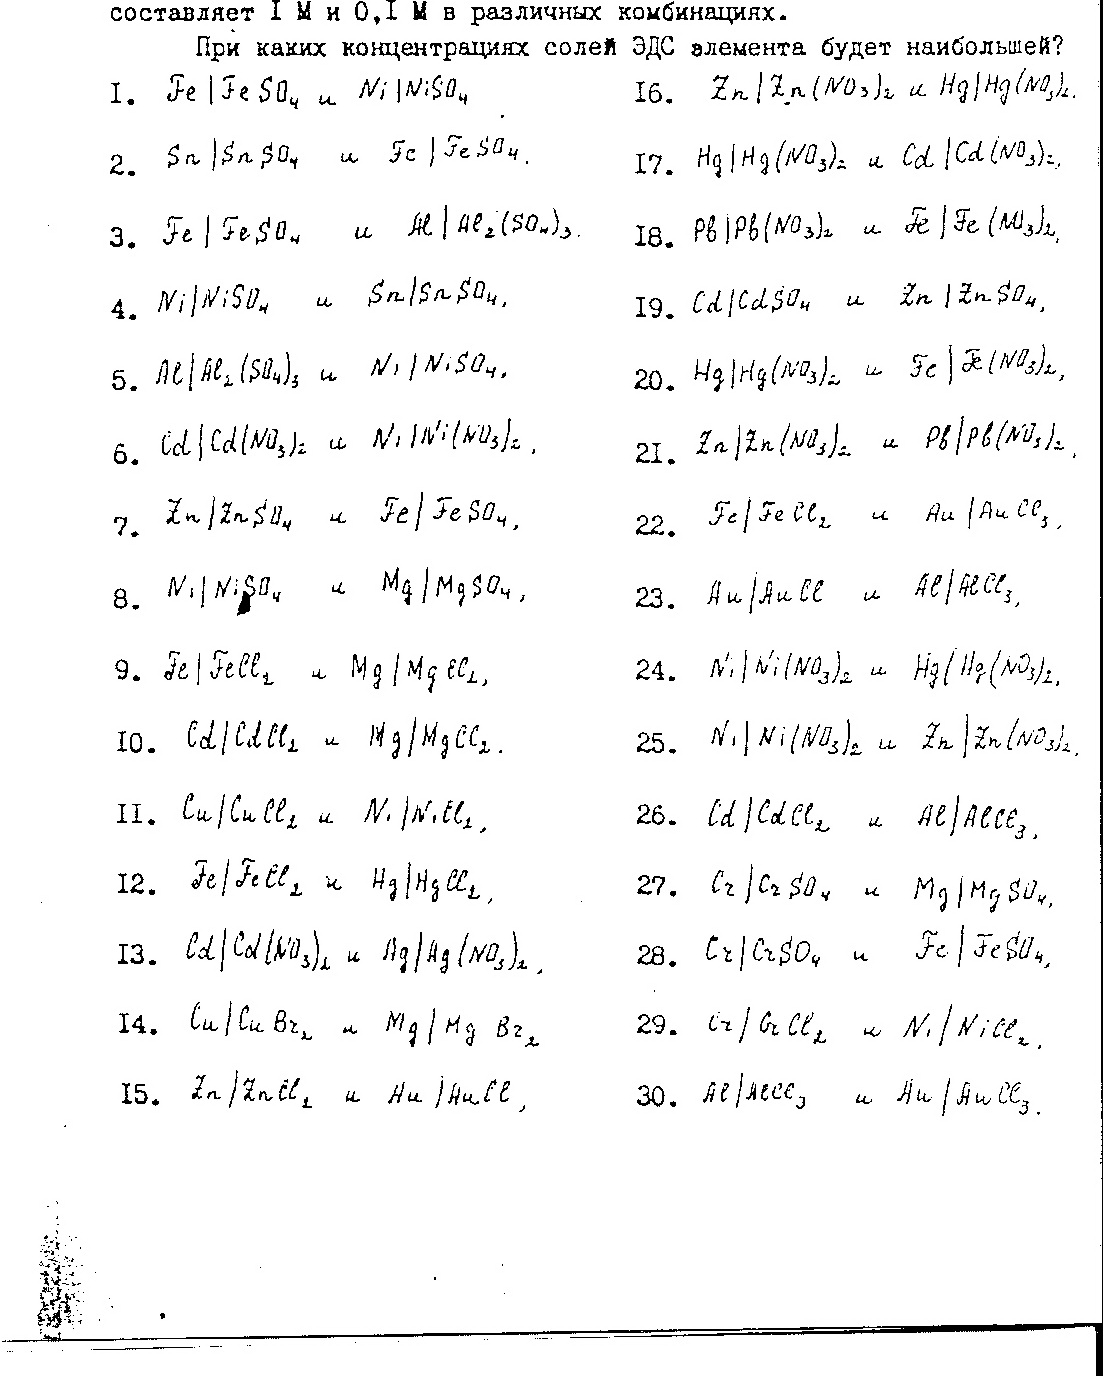 составляет I М и 0,I М в различных комбинациях.
При каких концентрациях солей ЭДС элемента будет наибольшей?
I. Fe|FeSO₄ и Ni|NiSO₄
2. Sn|SnSO₄ и Fe|FeSO₄.
3. Fe|FeSO₄ и Al|Al₂(SO₄)₃.
4. Ni|NiSO₄ и Sn|SnSO₄.
5. Al|Al₂(SO₄)₃ и Ni|NiSO₄.
6. Cd|Cd(NO₃)₂ и Ni|Ni(NO₃)₂.
7. Zn|ZnSO₄ и Fe|FeSO₄.
8. Ni|NiSO₄ и Mg|MgSO₄.
9. Fe|FeCl₂ и Mg|MgCl₂.
I0. Cd|CdCl₂ и Mg|MgCl₂.
II. Cu|CuCl₂ и Ni|NiCl₂.
I2. Fe|FeCl₂ и Hg|HgCl₂.
I3. Cd|Cd(NO₃)₂ и Ag|Ag(NO₃)₂.
I4. Cu|CuBr₂ и Mg|MgBr₂
I5. Zn|ZnCl₂ и Au|AuCl,
I6. Zn|Zn(NO₃)₂ и Hg|Hg(NO₃)₂.
I7. Hg|Hg(NO₃)₂ и Cd|Cd(NO₃)₂.
I8. Pb|Pb(NO₃)₂ и Fe|Fe(NO₃)₂.
I9. Cd|CdSO₄ и Zn|ZnSO₄.
20. Hg|Hg(NO₃)₂ и Fe|Fe(NO₃)₂.
2I. Zn|Zn(NO₃)₂ и Pb|Pb(NO₃)₂.
22. Fe|FeCl₂ и Au|AuCl₃.
23. Au|AuCl и Al|AlCl₃.
24. Ni|Ni(NO₃)₂ и Hg|Hg(NO₃)₂.
25. Ni|Ni(NO₃)₂ и Zn|Zn(NO₃)₂.
26. Cd|CdCl₂ и Al|AlCl₃.
27. Cr|CrSO₄ и Mg|MgSO₄.
28. Cr|CrSO₄ и Fe|FeSO₄.
29. Cr|CrCl₂ и Ni|NiCl₂.
30. Al|AlCl₃ и Au|AuCl₃.